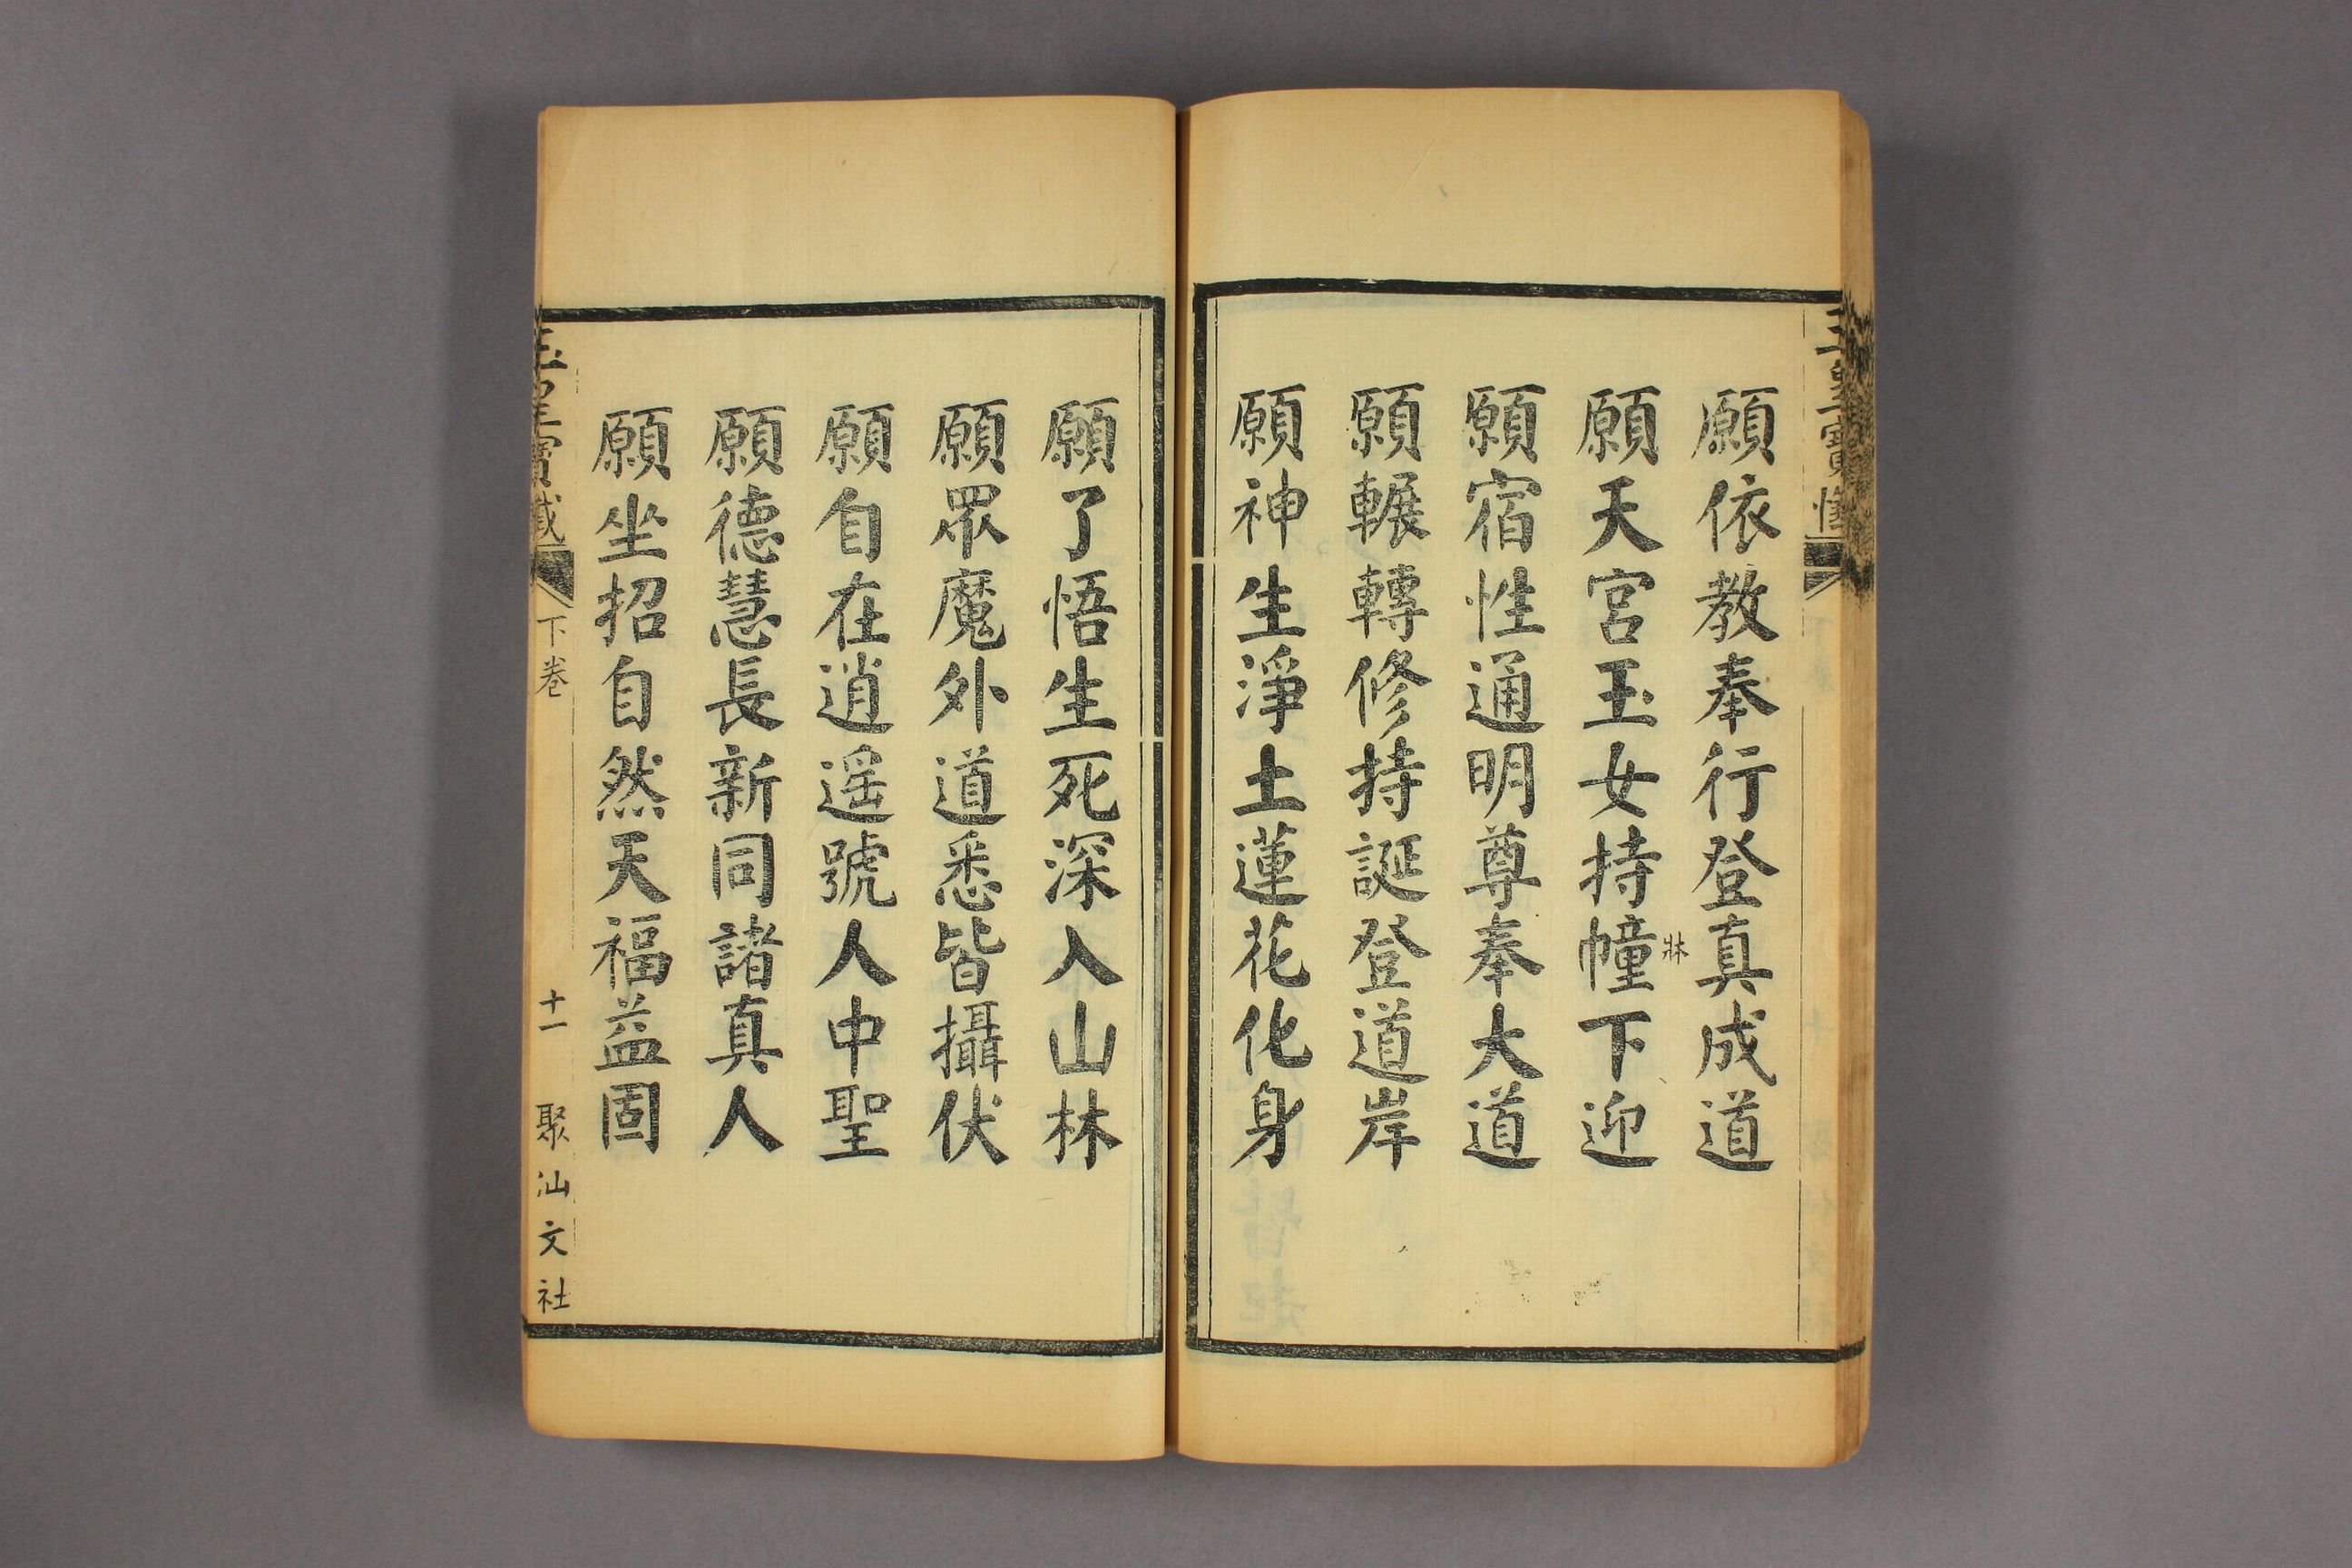 願依教奉行登真成道
願天宮玉女持幢下迎
願宿性通明尊奉大道
願輾轉修持誕登道岸
願神生淨土蓮花化身
願了悟生死深入山林
願眾魔外道悉皆攝伏
願自在逍遥號人中聖
願德慧長新同諸真人
願坐招自然天福益固
下卷
十一
聚汕文社